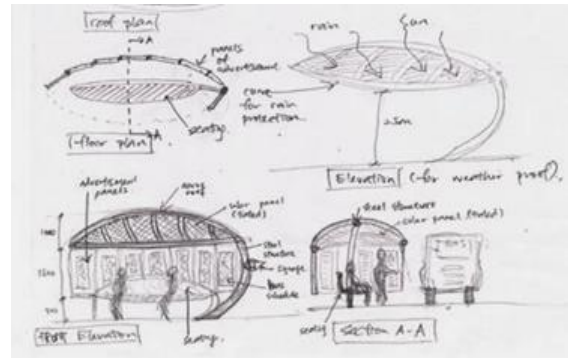 roof plan
A
panels
of
advertisement
seating.
floor plan
A.
rain
sun
curve
for rain
protection.
2.5m
Elevation (for weather proof).
advertisement
panels
roof
solar panel
(tinted)
steel
structure
signage
bus
schedule
seating.
front Elevation
steel structure
solar panel (tinted)
seating
Section A-A